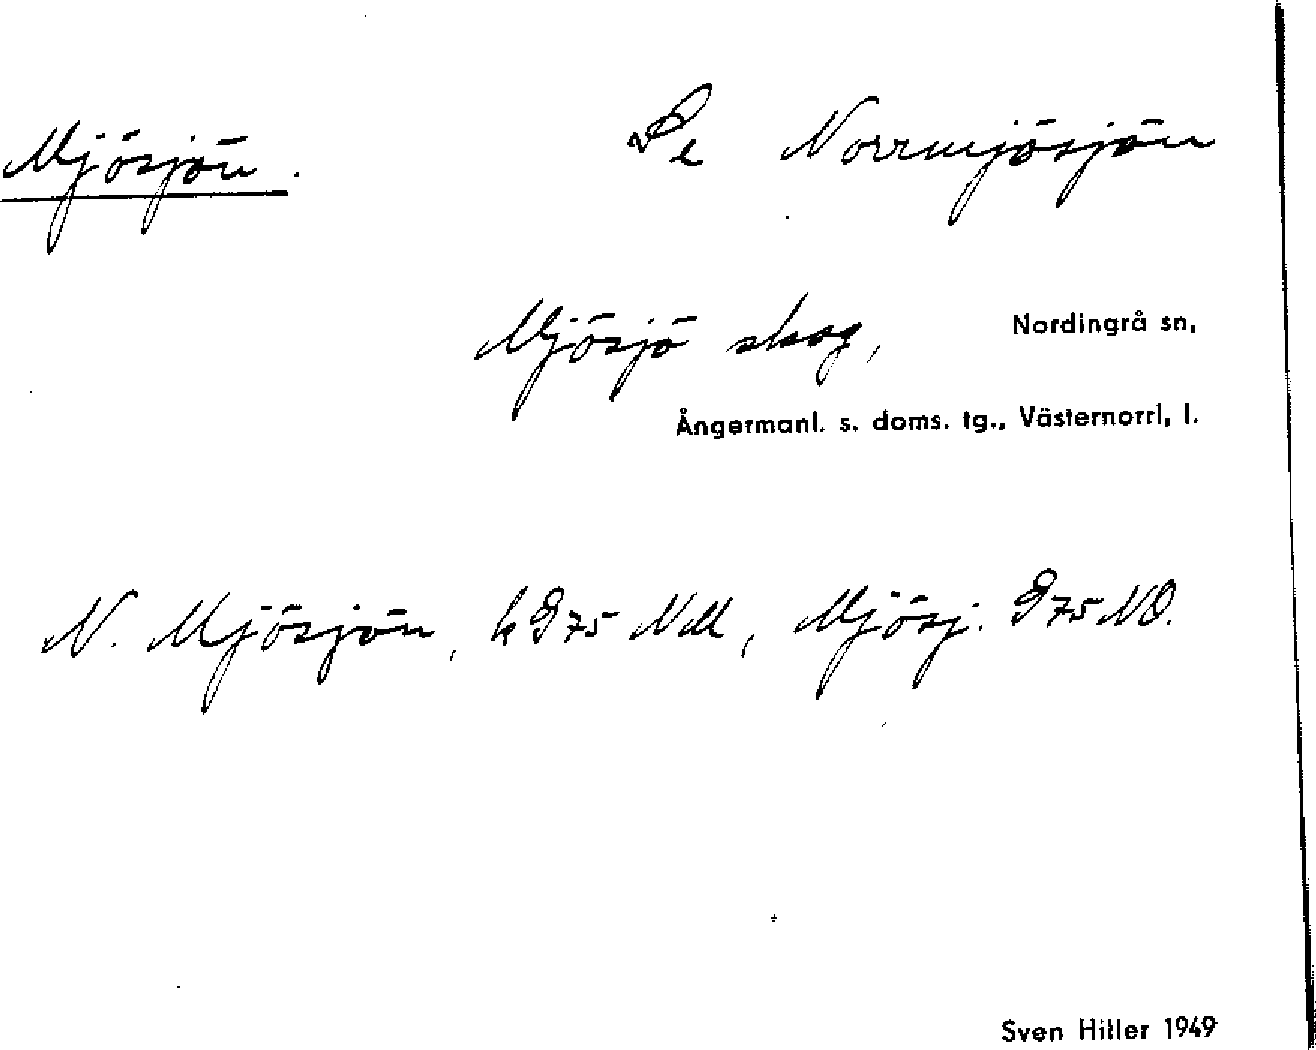 Mjösjön. Se Norrmjösjön
Mjösjö skog, Nordingrå sn,
Ångermanl. s. doms. tg., Västernorrl, l.
N. Mjösjön, k 975 NM, Mjösj. 975 NO.
Sven Hiller 1949